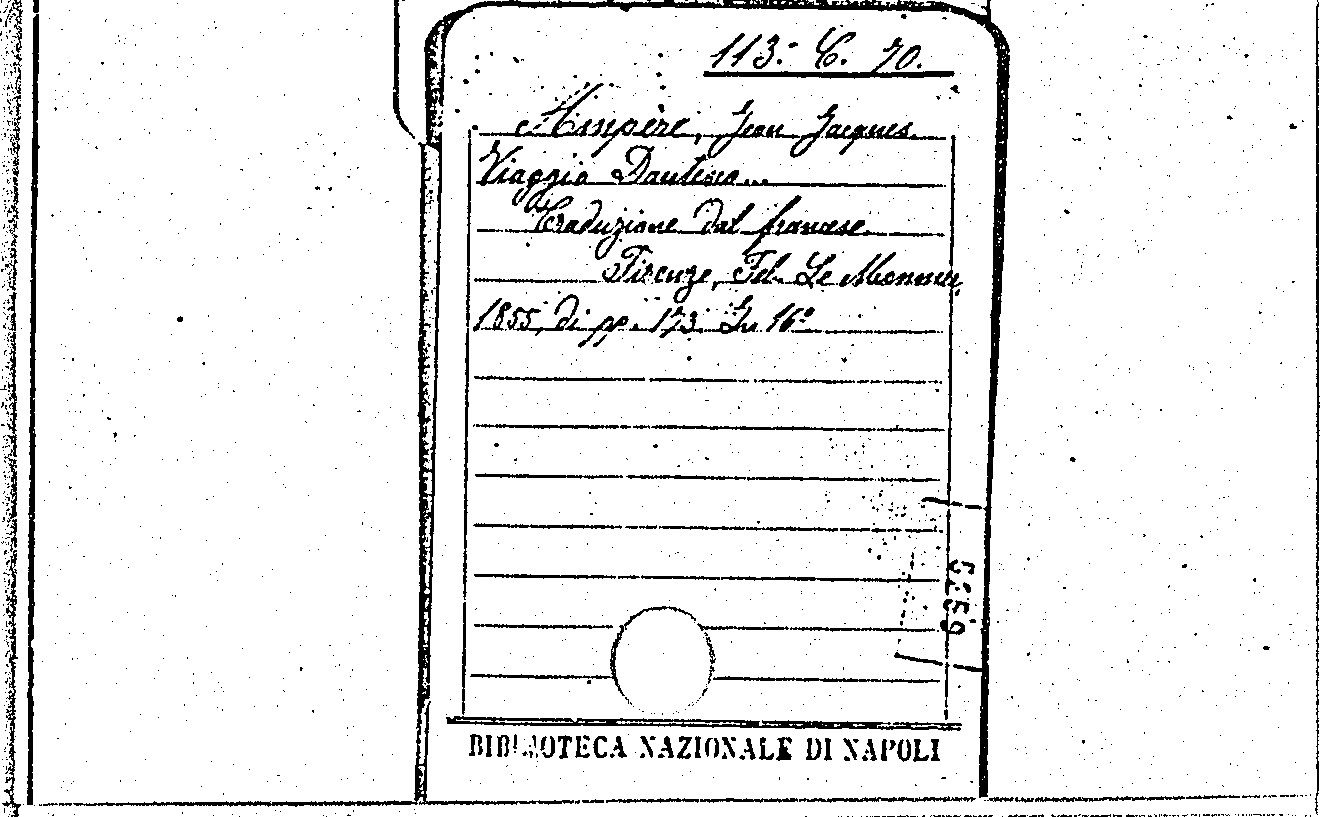 113. C. 70.
Ampère, Jean Jacques.
Viaggio Dantesco...
Traduzione dal francese.
Firenze, Fel. Le Monnier,
1855, di pp. 173. In 16º
5259
BIBLIOTECA NAZIONALE DI NAPOLI